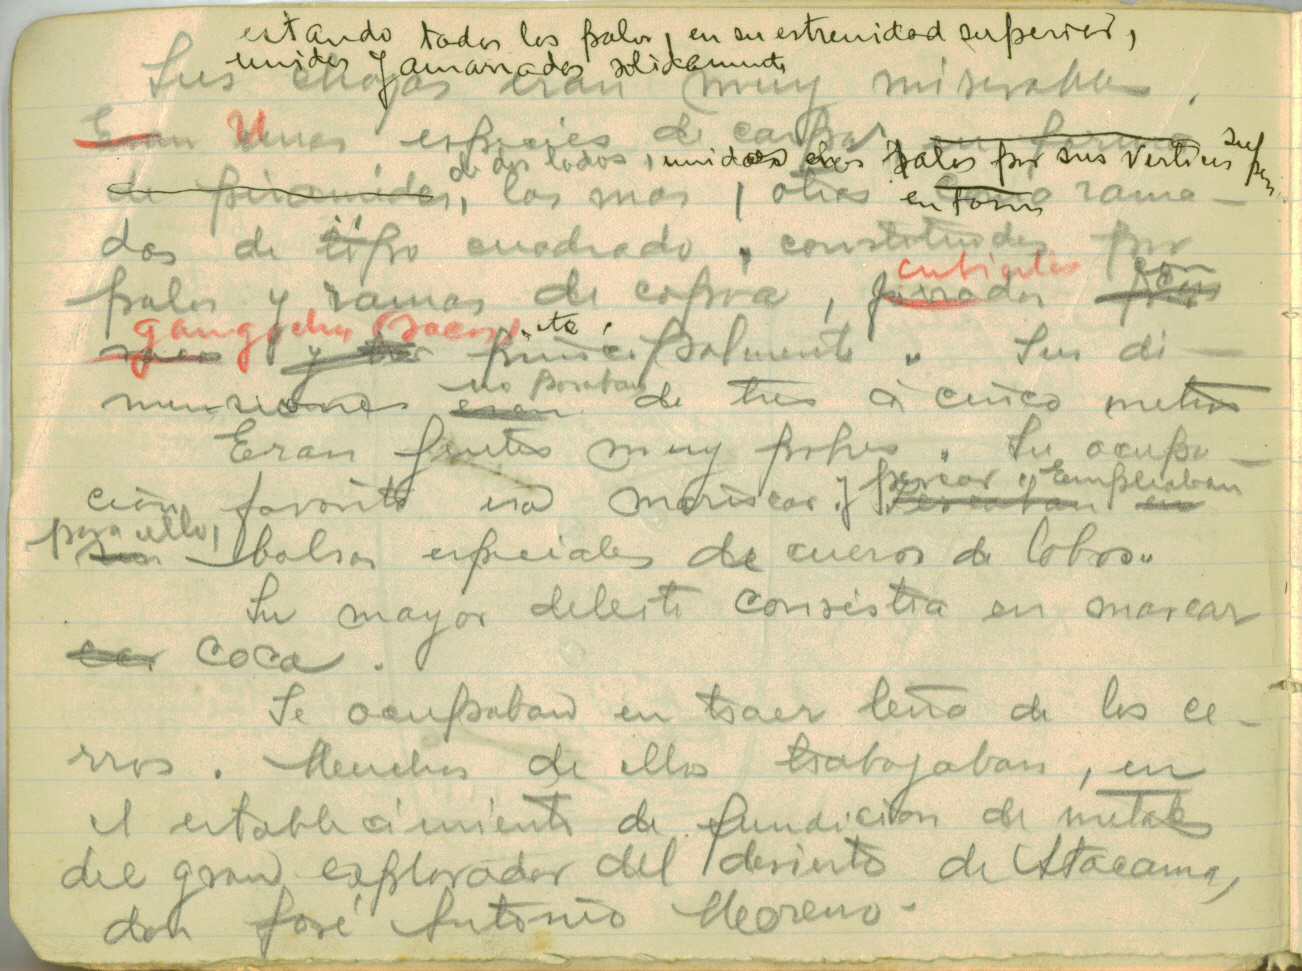 estando todos los palos, en su estremidad superior,
unidos y amarrados solidamente
Sus chozas eran muy miserables.
Eran Unas especies de carpas en forma
de dos lados, unidos los palos por sus vertices super.
de piramides, las mas, otras como rama-
en forma
das de tipo cuadrado, constituidas por
cubiertas con
palos y ramas de copoa, forrados por
gangochos (sacos) etc.
sacos y principalmente. Sus di-
no pasaban
mensiones eran de tres a cinco metros
Eran gentes muy pobres. Su ocupa-
cion favorita era mariscar y pescar y Empleaban
pescaban en
para ello,
sus balsas especiales de cueros de lobos.
Su mayor deleite consistia en mascar
coca.
Se ocupaban en traer leña de los ce-
rros. Muchos de ellos trabajaban, en
el establecimiento de fundicion de metales
del gran explorador del desierto de Atacama,
don José Antonio Moreno.